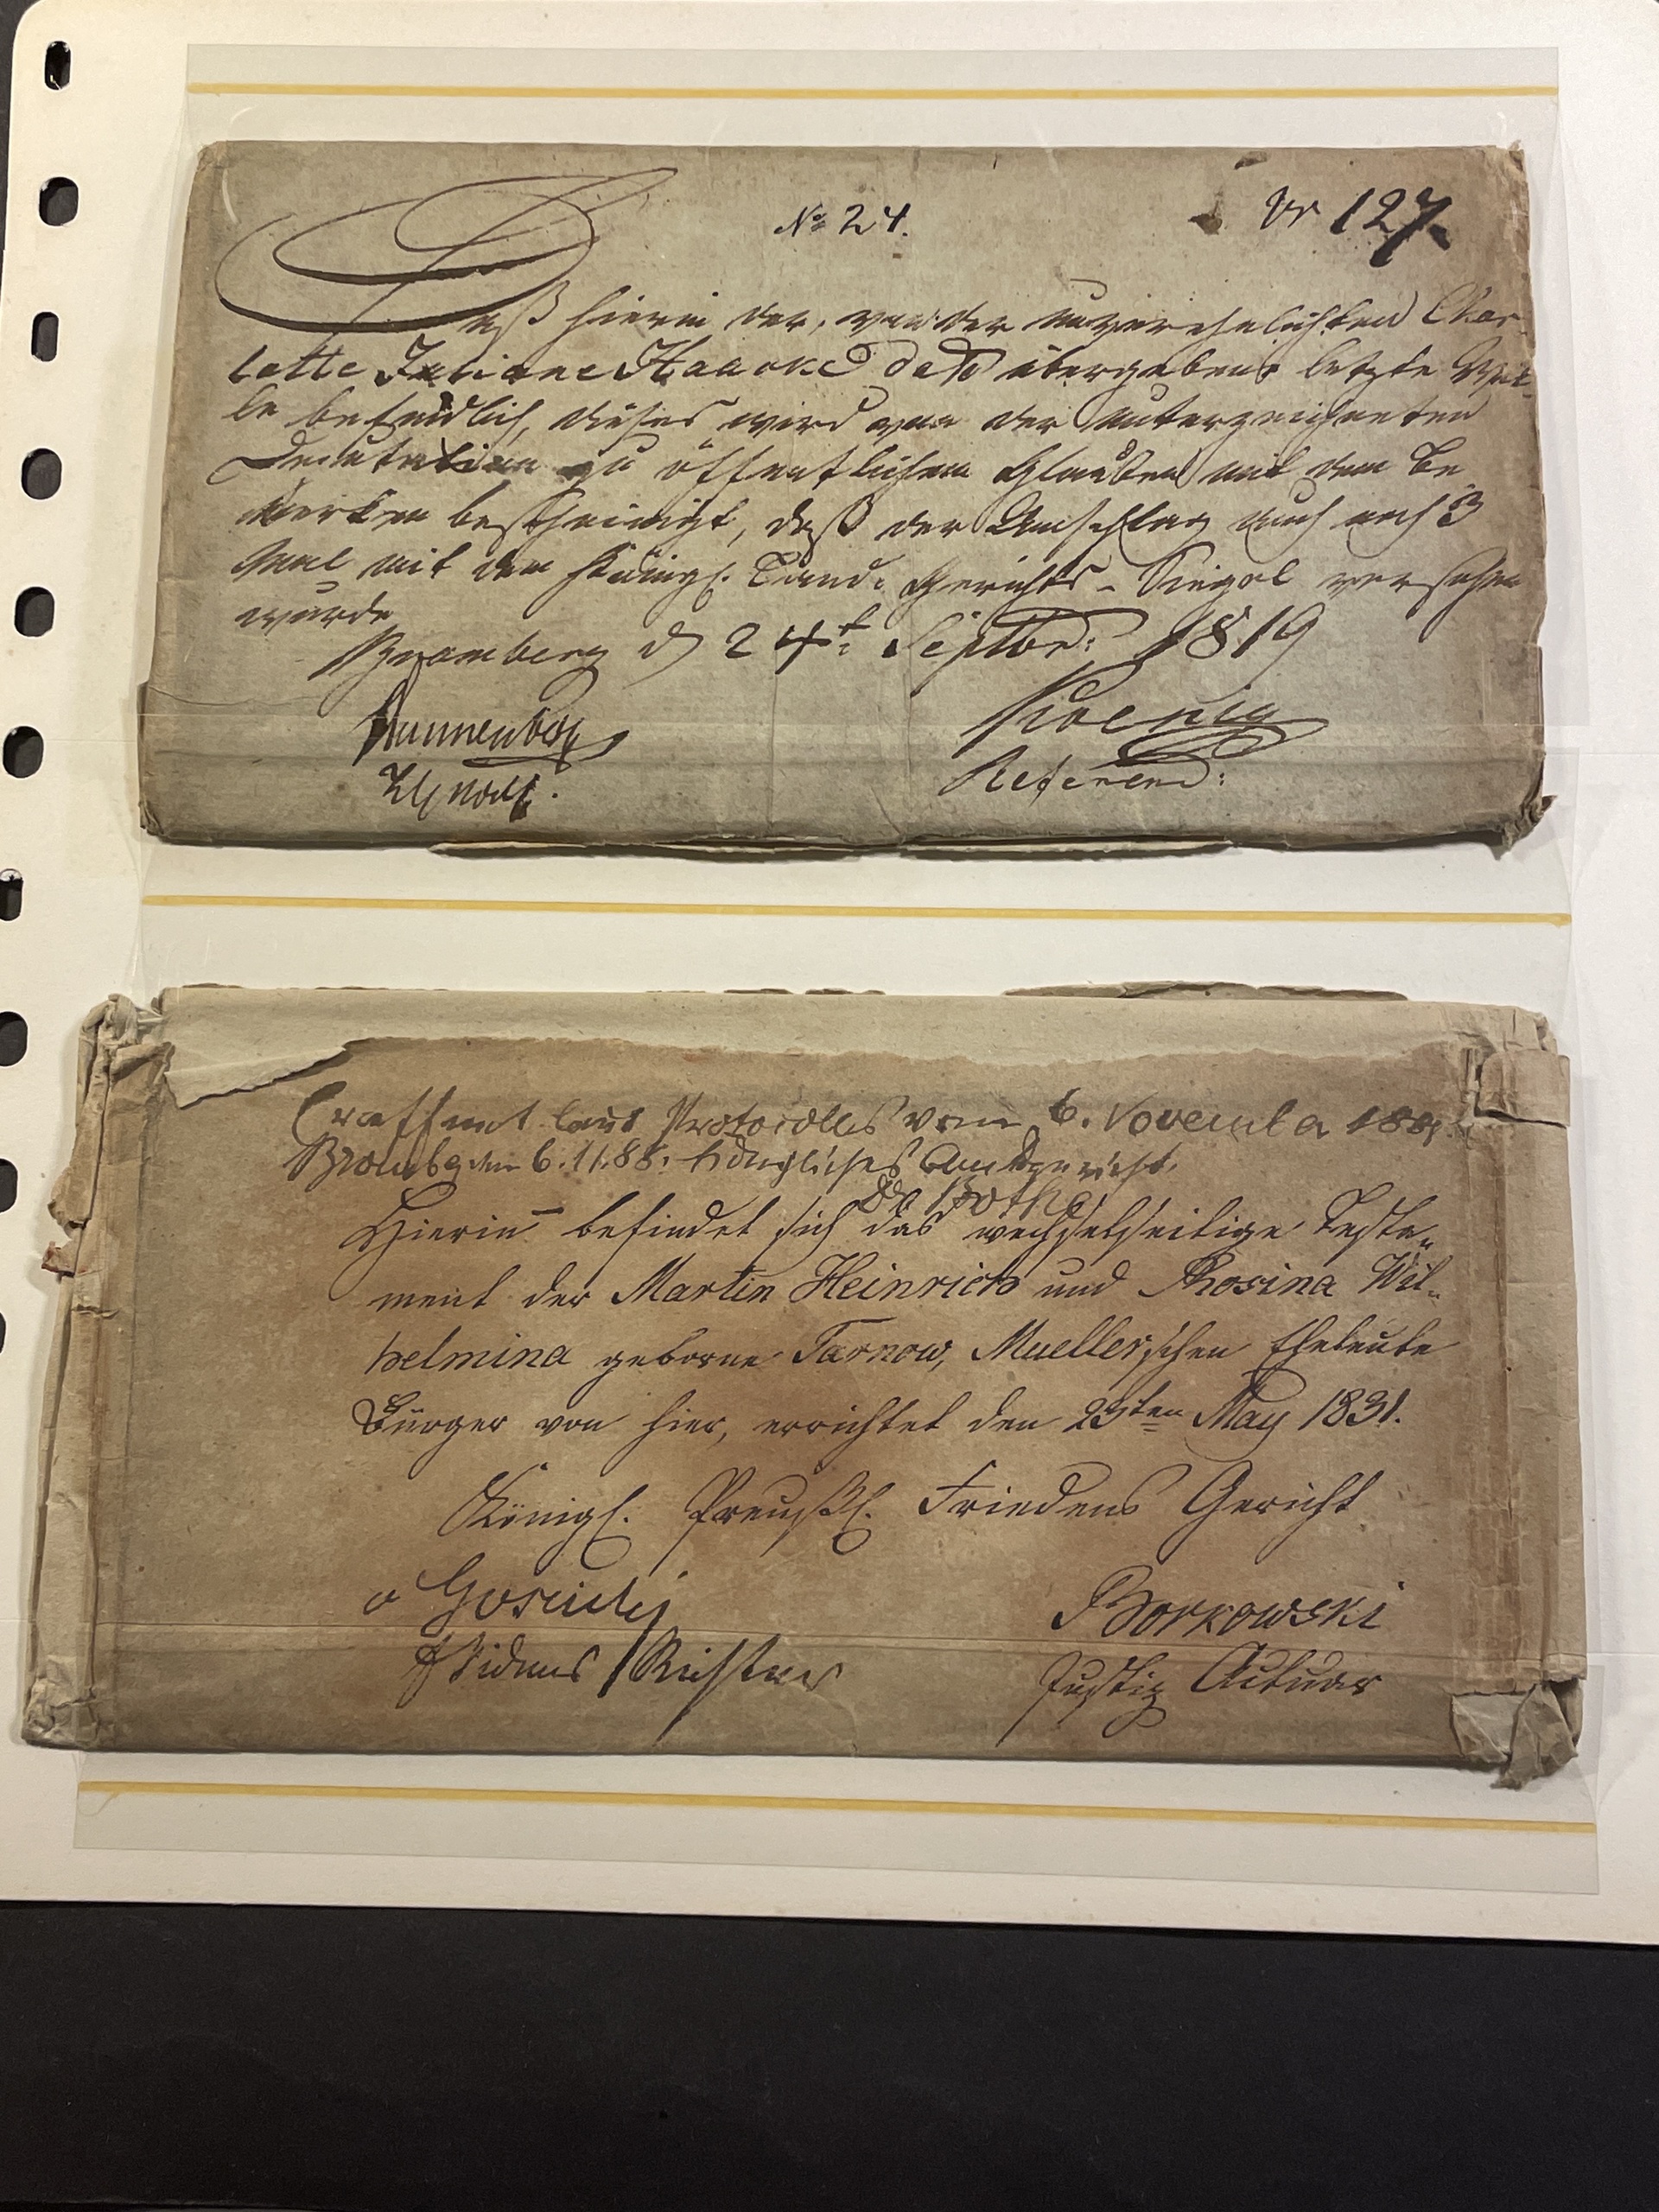 No 24.
Nr 127.
Daß hierin der, von der unverehelichten Char-
lotte Juliane Haacke dato übergebene letzte Wil-
le befindlich, dieses wird von der unterzeichneten
Deputation zu öffentlichem Glauben mit dem Be
merken bescheinigt, daß der Umschlag auch noch 3
Mal mit dem Königl. Land-Gerichts-Siegel versehen
wurde
Bromberg d 24t. Septbr: 1819
Koenig
Referend:
Eroeffnet laut Protocolles vom 6. November
Bromberg den 6.11.88. Königliches Amtsgericht.
Hierin befindet sich das wechselseitige Testa-
ment der Martin Heinrich und Rosina Wil-
helmina geborne Tarnow, Muellerschen Eheleute
Bürger von hier, errichtet den 23ten May 1831.
Königl. Preußl. Friedens Gericht
Borkowski
Friedens Richter
Justiz Actuar